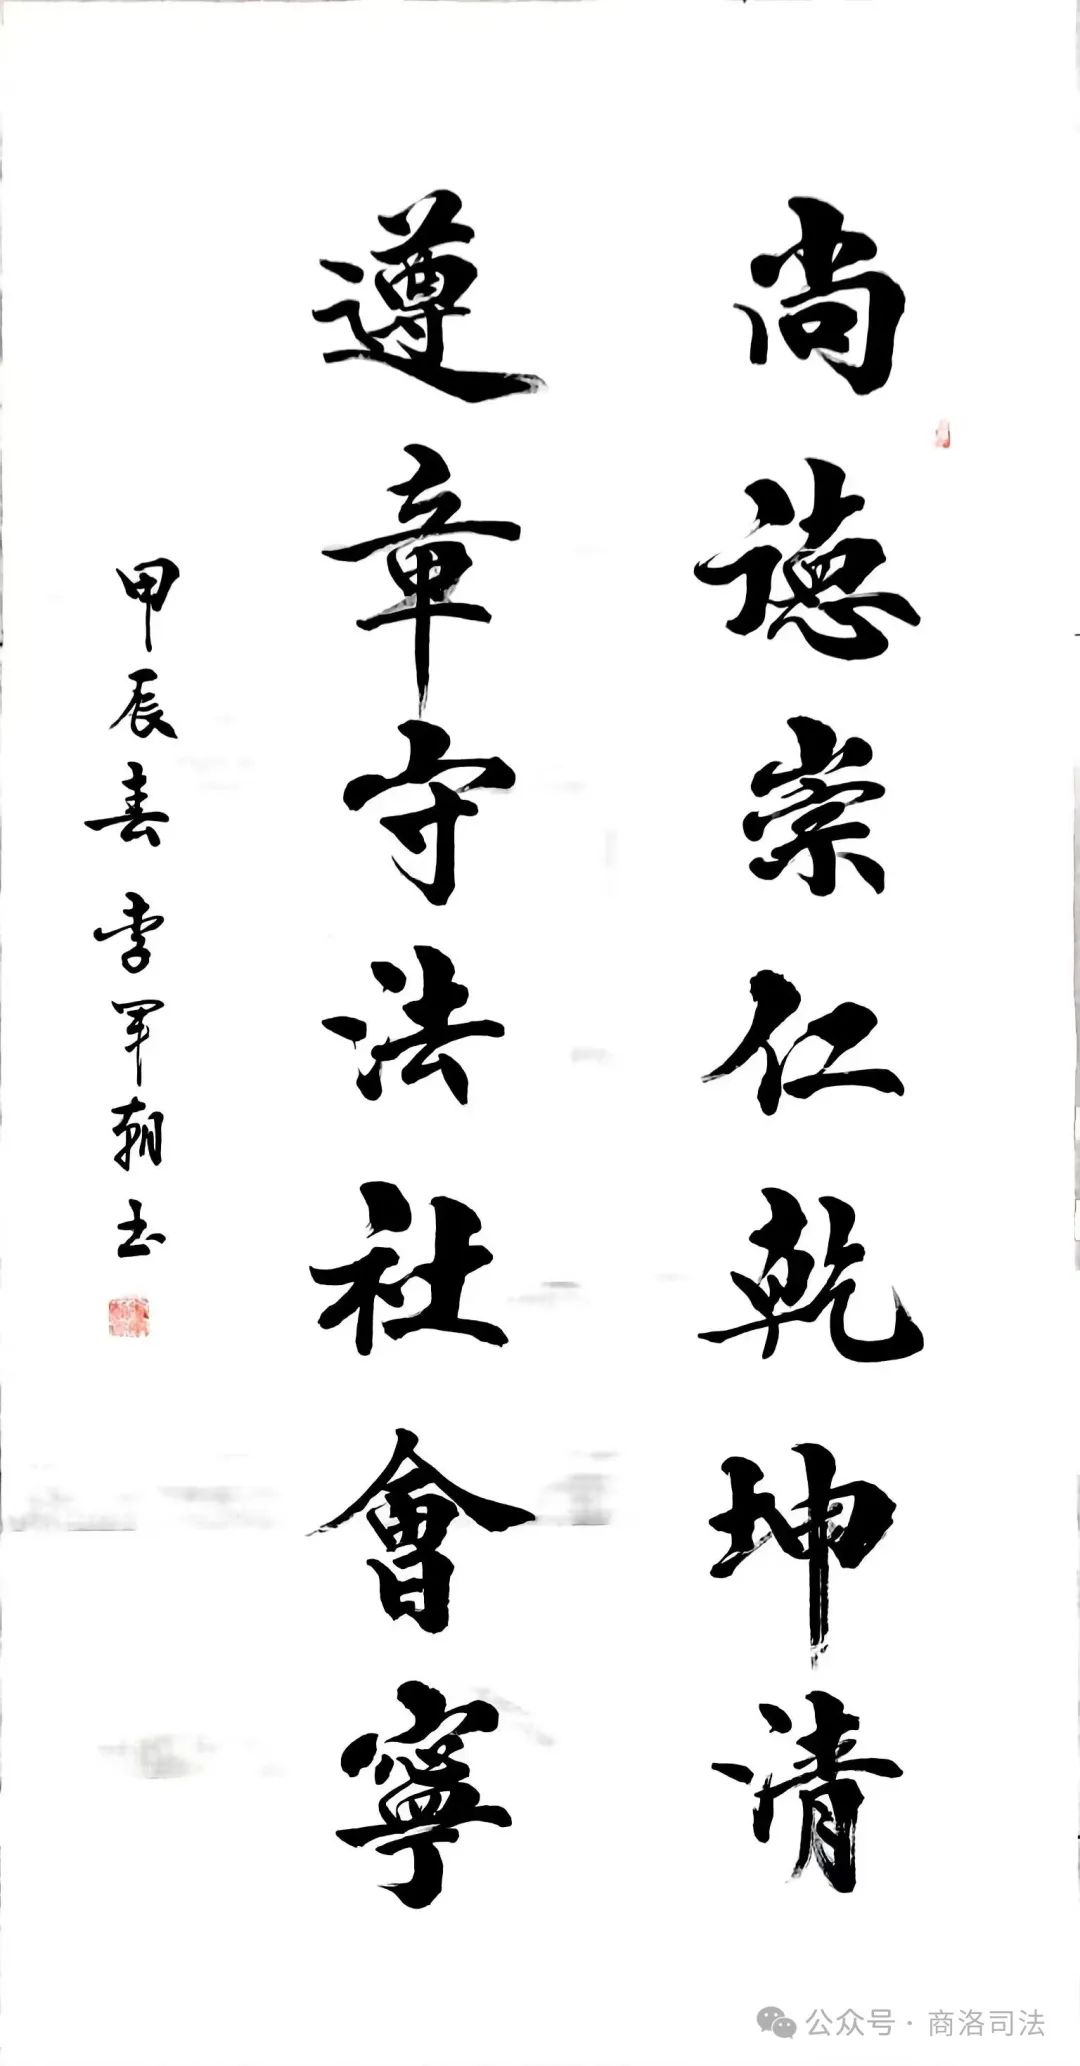 尚德崇仁乾坤清
遵章守法社會寧
甲辰春李軍朝书
公众号·商洛司法